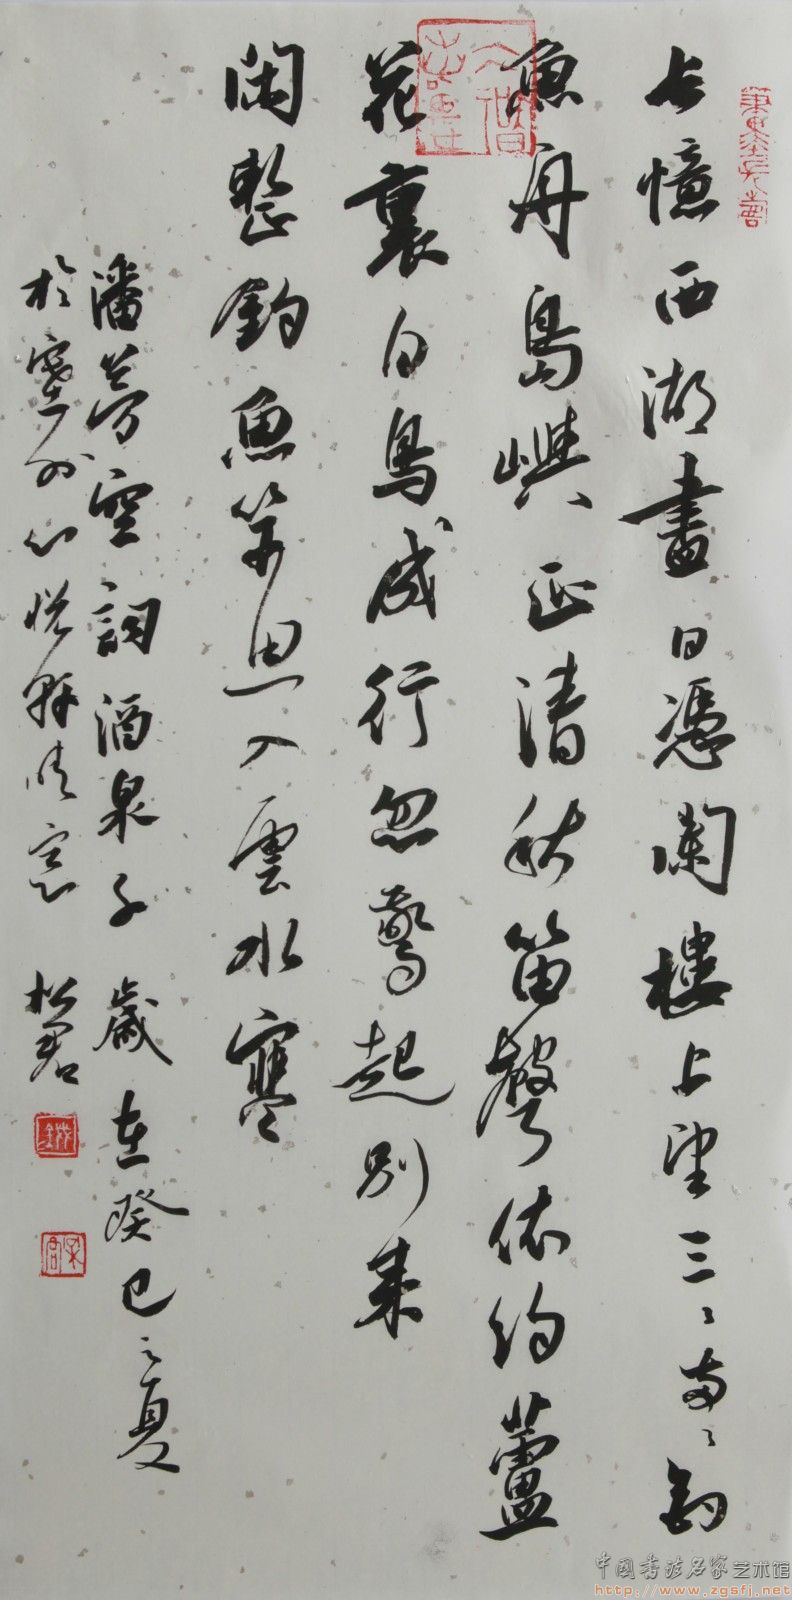 長憶西湖盡日憑闌樓上望三〻兩〻釣
魚舟島嶼正清秋笛聲依約蘆
花裏白鳥成行忽驚起別來
閑整釣魚竿思入雲水寒
潘夢空詞酒泉子 歲在癸巳之夏
於心悅軒晴窗 松君
中国书法名家艺术馆
http://www.zgsfj.net